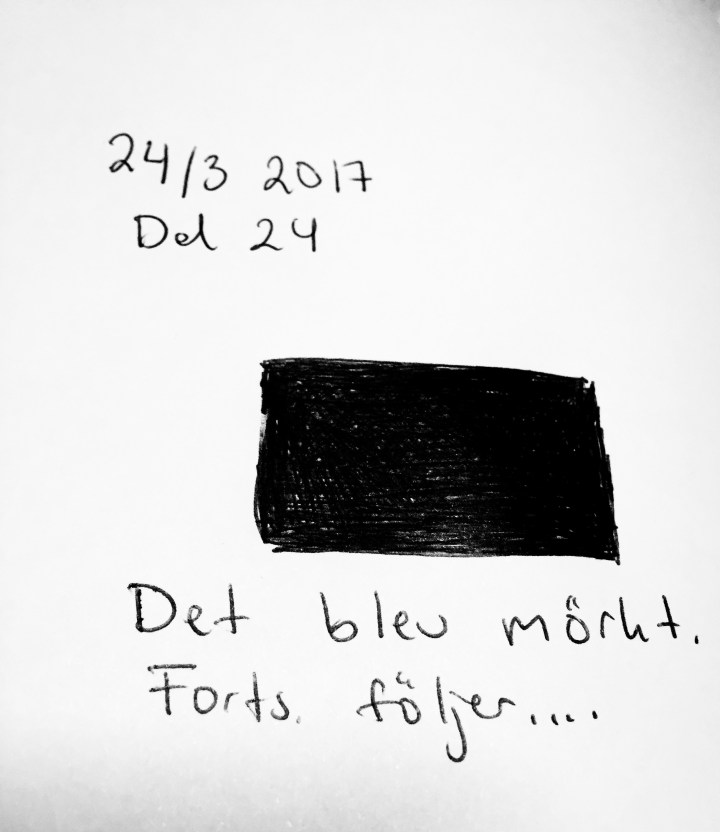 24/3 2017
Del 24
Det blev mörkt.
Forts. följer....